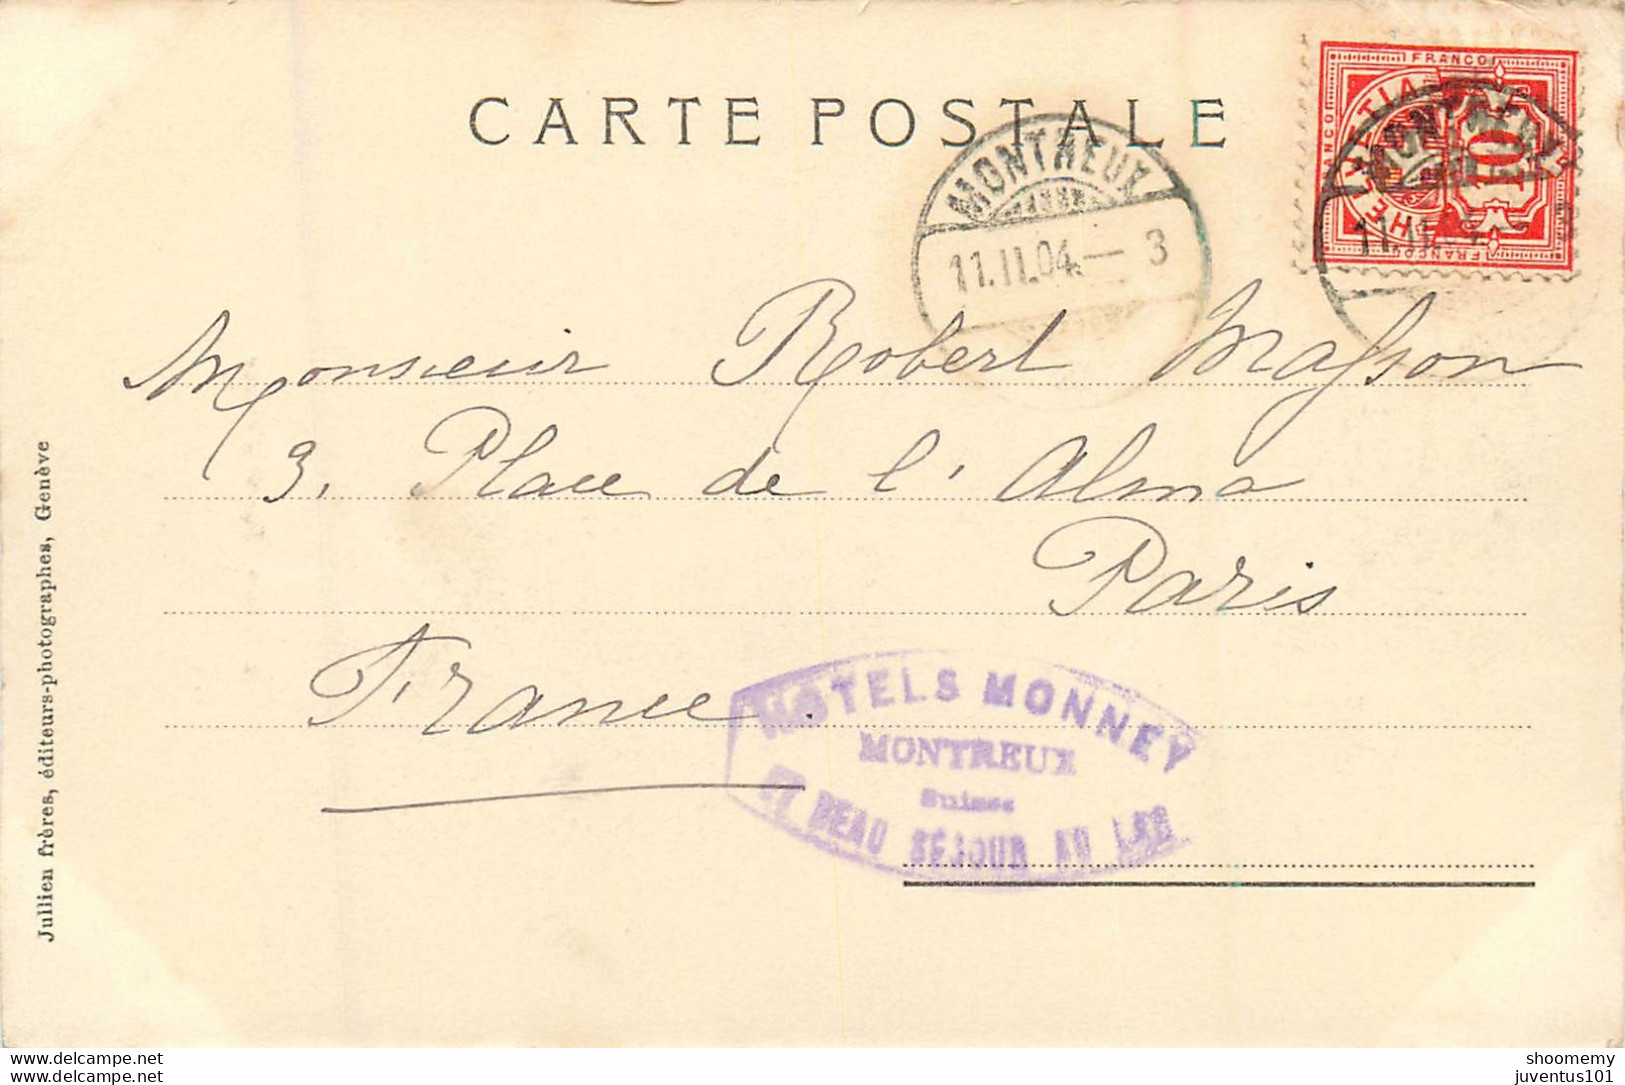 CARTE POSTALE
FRANCO
HELVETIA
10
FRANCO
FRANCO
MONTREUX
11.II.04.— 3
MONTREUX
11.II.04
Monsieur Robert Masson
3, Place de l'Alma
Paris
France.
HOTELS MONNEY
MONTREUX
Suisse
ET BEAU SÉJOUR AU LAC
Jullien frères, éditeurs-photographes, Genève
delcampe.net
delcampe.net
shoomemy
juventus101